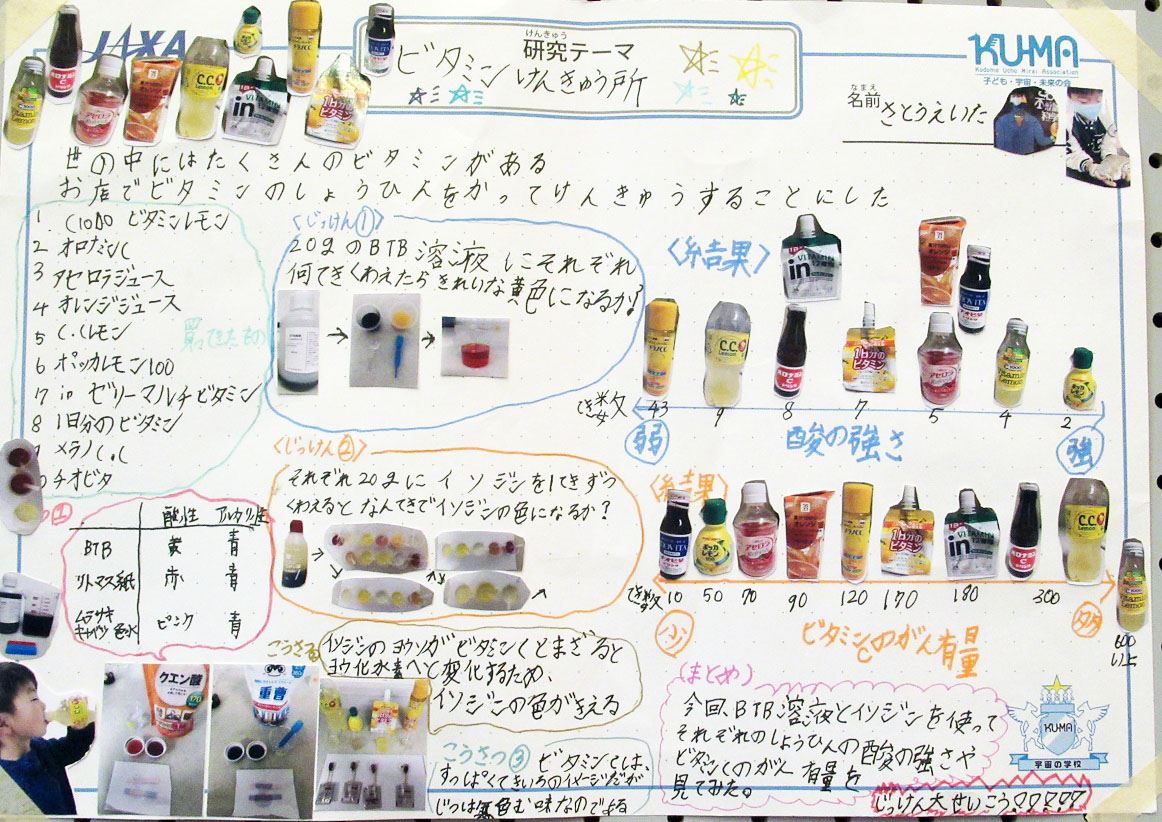 JAXA
けんきゅう
研究テーマ
ビタミンけんきゅう所
KU-MA
Kodomo Uchu Mirai Association
子ども・宇宙・未来の会
なまえ
名前 さとうえいた
世の中にはたくさんのビタミンがある
お店でビタミンのしょうひんをかってけんきゅうすることにした
買ってきたもの
1. C1000 ビタミンレモン
2 オロナミンC
3 アセロラジュース
4 オレンジジュース
5 C.Cレモン
6 ポッカレモン100
7 in ゼリーマルチビタミン
8 1日分のビタミン
メラノC.C
チオビタ
〈じっけん①〉
20gのBTB溶液にそれぞれ
何てきくわえたらきれいな黄色になるか?
〈結果〉
てき数 43 9 8 7 5 4 2
弱 酸の強さ 強
〈じっけん②〉
それぞれ20gにイソジンを1てきずつ
くわえるとなんてきでイソジンの色になるか?
〈結果〉
てき数 10 50 70 90 120 170 180 300 600以上
少 ビタミンCのがん有量 多
酸性 アルカリ性
BTB 黄 青
リトマス紙 赤 青
ムラサキキャベツ色水 ピンク 青
イソジンのヨウソがビタミンCとまざると
ヨウ化水素へと変化するため、
イソジンの色がきえる
こうさつ③ ビタミンCは、
すっぱくてきいろのイメージだが
じつは無色む味なのである
(まとめ)
今回、BTB溶液とイソジンを使って
それぞれのしょうひんの酸の強さや
ビタミンCのがん有量を
見てみた。
じっけん大せいこう!!!!!
クエン酸
重曹
KU-MA
宇宙の学校